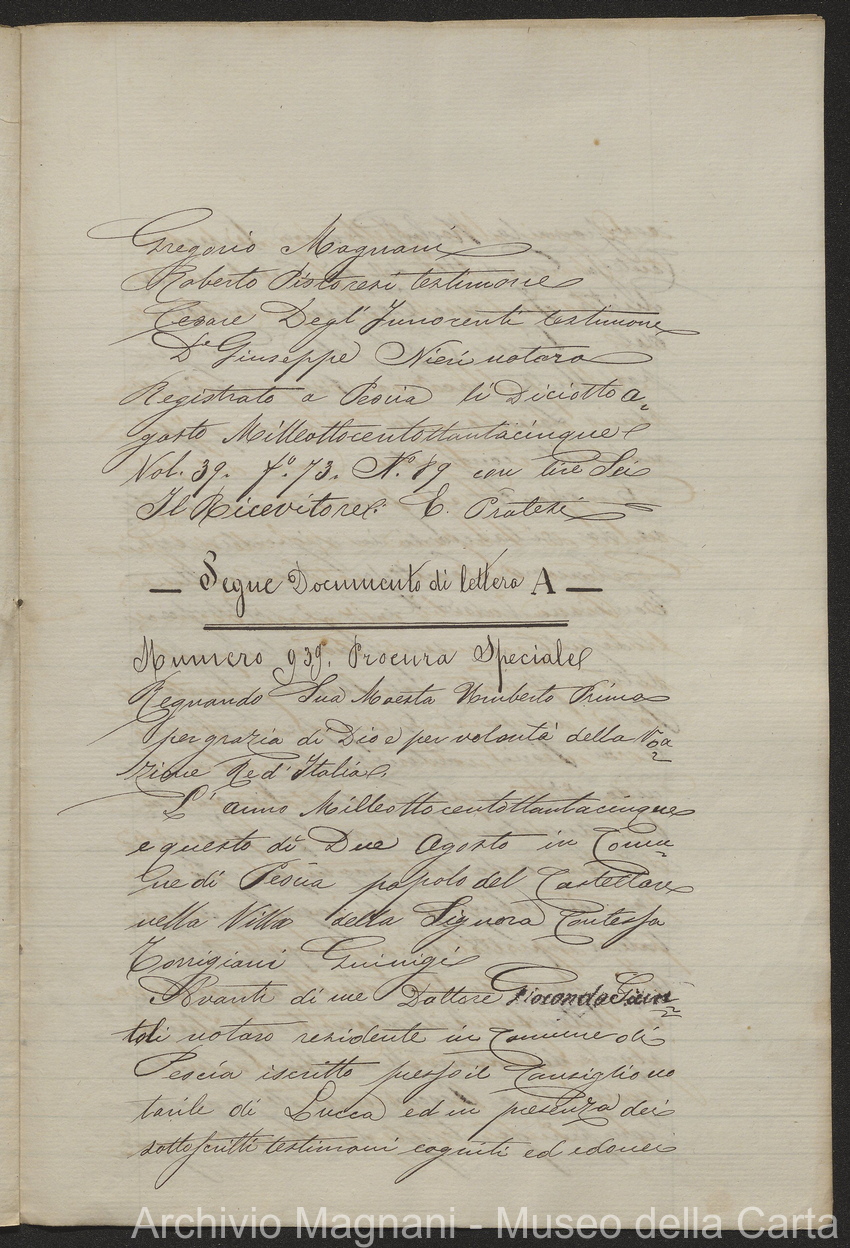 Gregorio Magnani
Roberto Pistoresi testimone
Cesare Degl'Innocenti testimone
Dre Giuseppe Nieri notaro
Registrato a Pescia li Diciotto a=
gosto Milleottocentottantacinque
Vol. 39. fo. 73. No. 89 con lire Sei
Il Ricevitore. E. Pratesi
— Segue Documento di lettera A —
Numero 939. Procura Speciale
Regnando Sua Maesta Umberto Primo
per grazia di Dio e per volontà della Na=
zione Re d'Italia.
L'anno Milleottocentottantacinque
e questo dì Due Agosto in Comu=
ne di Pescia popolo del Castellare
nella Villa della Signora Contessa
Torrigiani Guinigi
Avanti di me Dottore Giocondo Giun=
toli notaro residente in Comune di
Pescia iscritto presso il Consiglio no
tarile di Lucca ed in presenza dei
sottoscritti testimoni cogniti ed idonei
Archivio Magnani - Museo della Carta